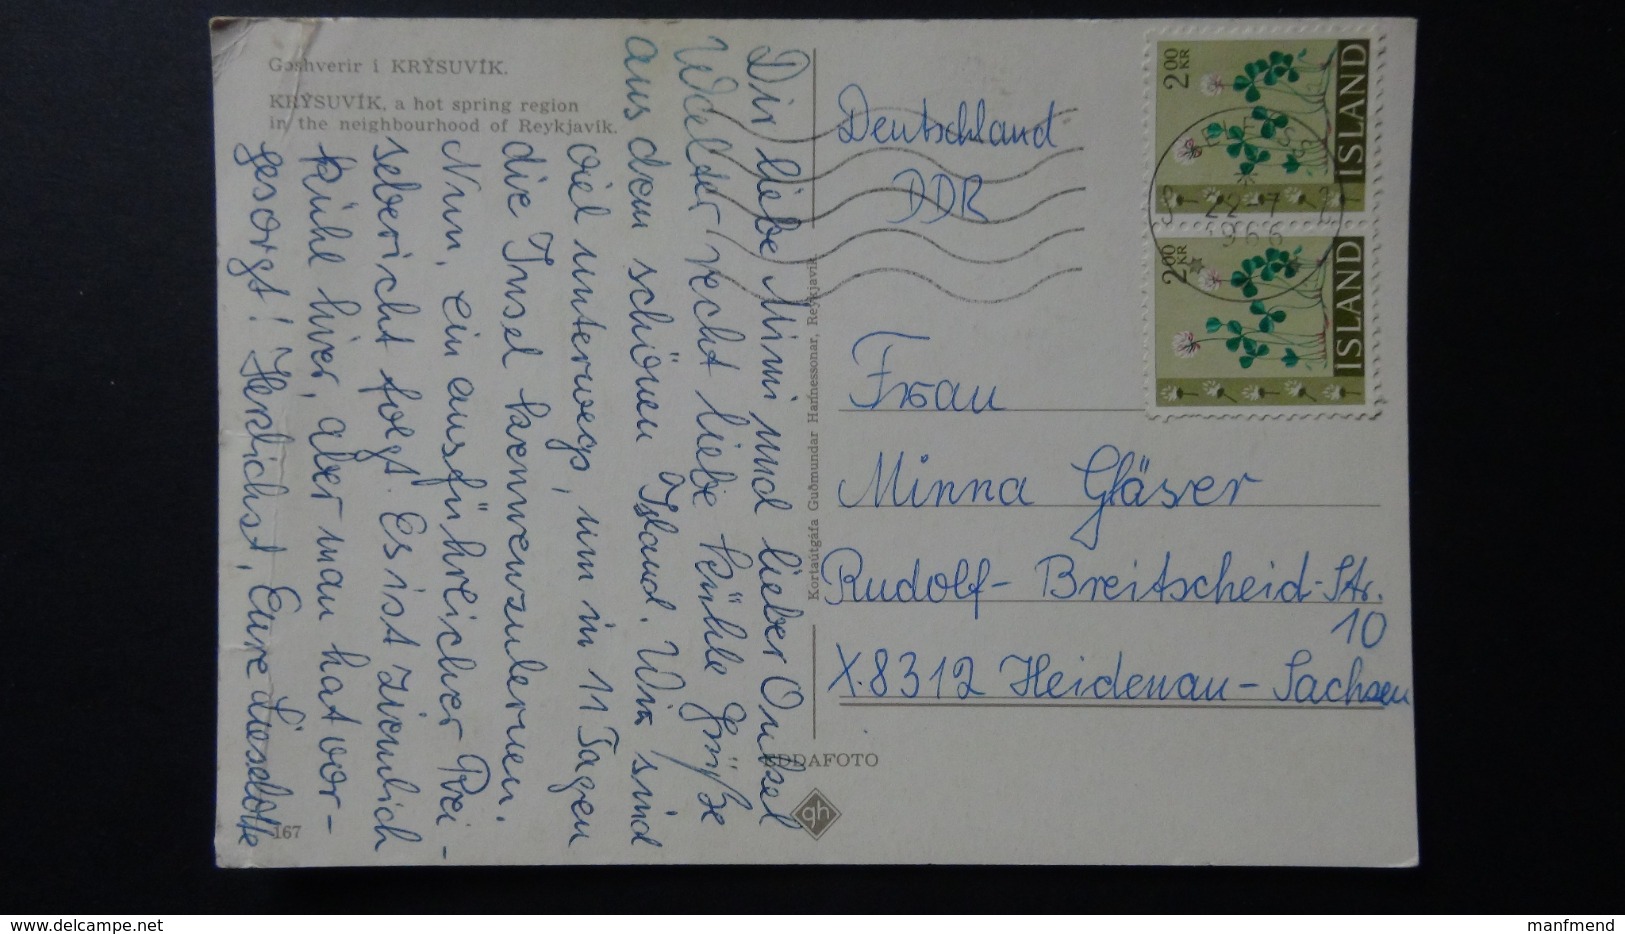 Goshverir i KRÝSUVÍK.
KRÝSUVÍK, a hot spring region
in the neighbourhood of Reykjavík.
Dir liebe Mimi und lieber Onkel
Walter recht liebe kühle Grüße
aus dem schönen Island. Wir sind
viel unterwegs, um in 11 Tagen
die Insel kennenzulernen.
Nun, ein ausführlicher Rei-
sebericht folgt. Es ist ziemlich
kühl hier, aber man hat vor-
gesorgt! Herzlichst, Eure Lieselotte
167
Kortaútgáfa Guðmundar Hannessonar, Reykjavík
EDDAFOTO
gh
Deutschland
DDR
Frau
Minna Gläser
Rudolf-Breitscheid-Str.
10
X.8312 Heidenau-Sachsen
2.00 KR
ÍSLAND
2.00 KR
ÍSLAND
22-7
1966
delcampe.net
manfmend